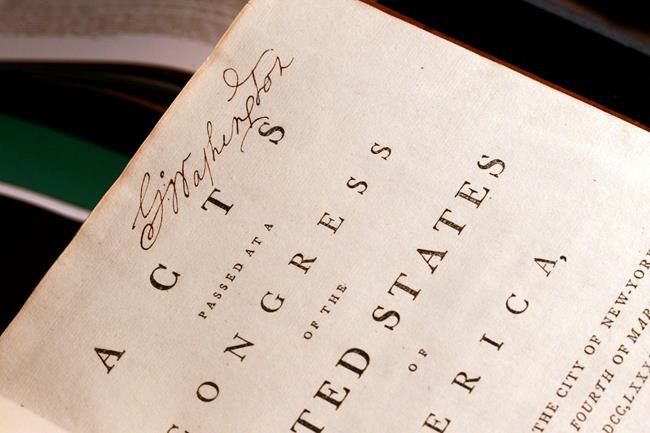 G:Washington
ACTS
PASSED AT A
CONGRESS
OF THE
ITED STATES
OF
ERICA,
THE CITY OF NEW-YORK
FOURTH OF MAR
DCC,LXXX